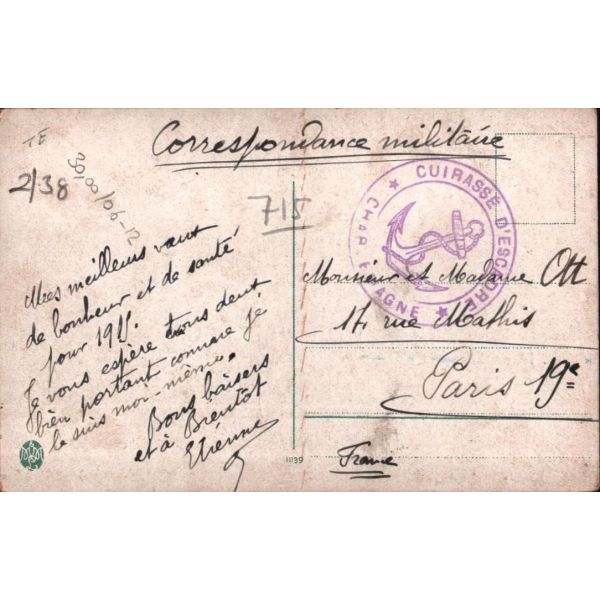 Correspondance militaire
TE
2/38
30,00/06-12
715
CUIRASSÉ D'ESCADRE
CHARLEMAGNE
Mes meilleurs vœux
de bonheur et de santé
pour 1915.
Je vous espère tous deux
bien portant comme je
le suis moi-même.
Bons baisers
et à Bientôt
Etienne
Monsieur et Madame Ott
17 rue Mathis
Paris 19e
France
1139